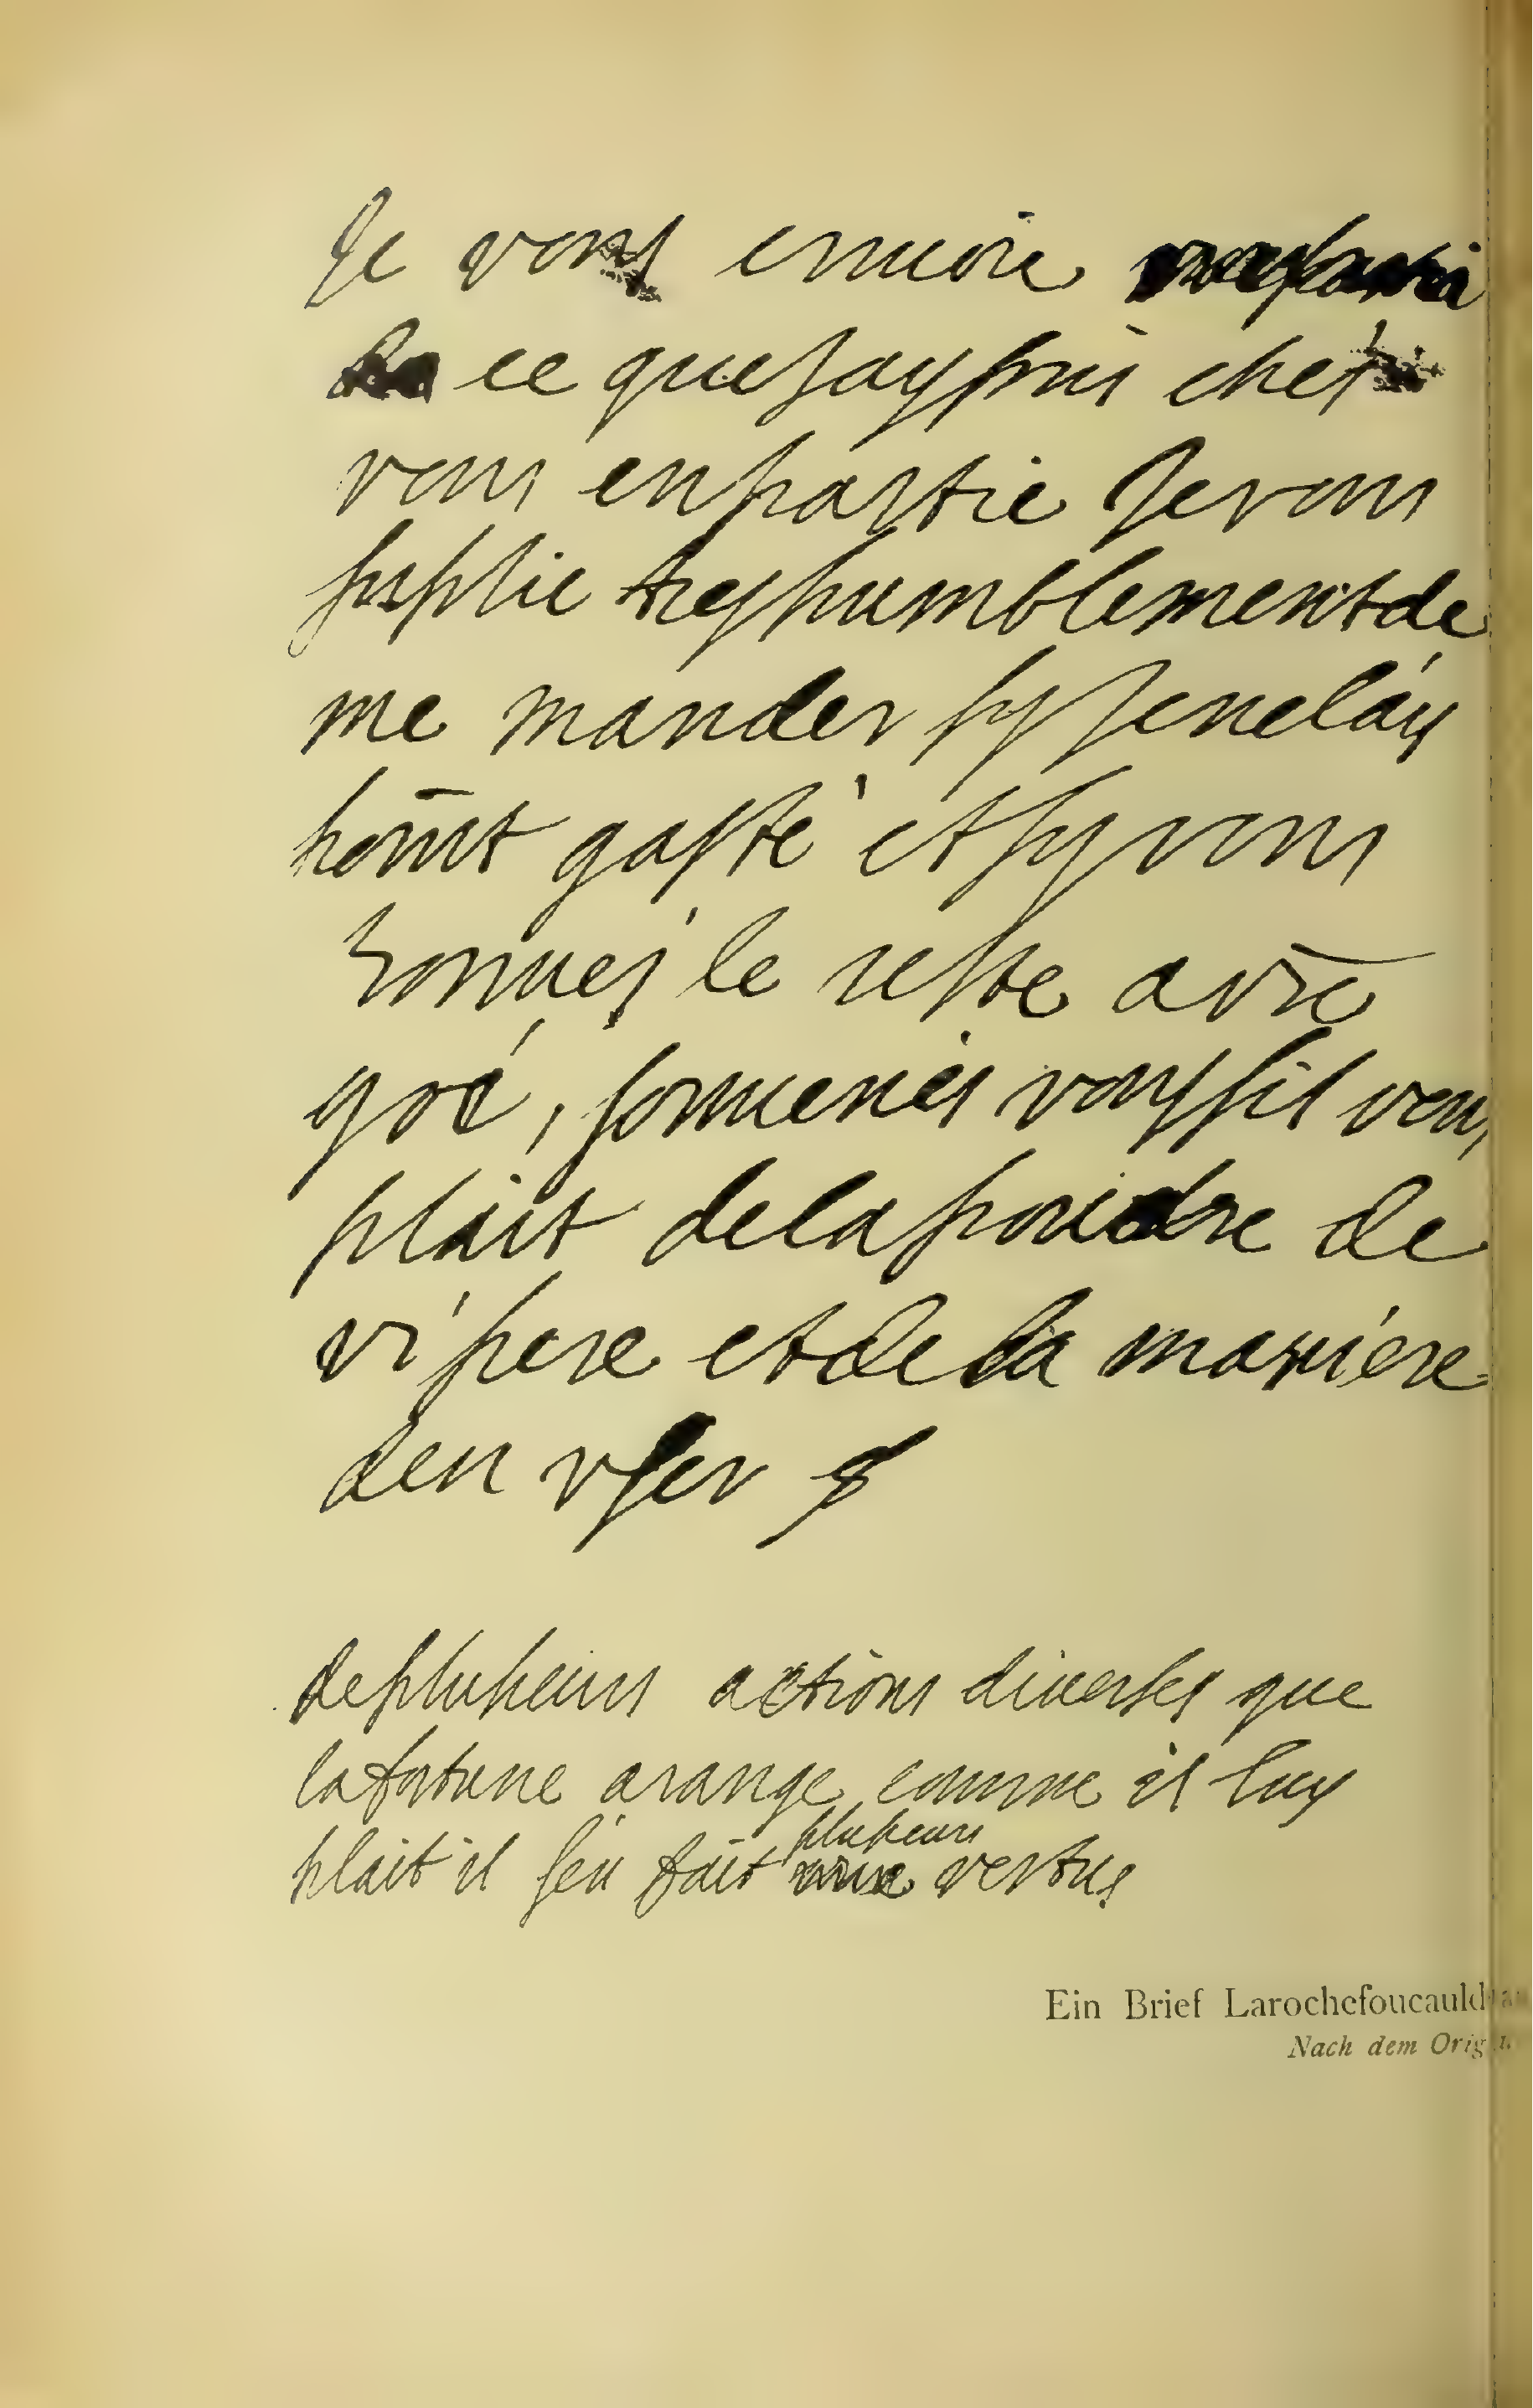 Je vous enuoie
ce que Jay pris ches
vous en partie Je vous
suplie tres humblement de
me mander sy Je ne lay
point gasté et sy vous
trouues le reste a vr̄e
gré, souuenes vous sil vous
plait de la poudre de
vipere et de la maniere
den vser
de plusieurs actions diuerses que
la fortune arange comme il luy
plait il sen fait plusieurs vertus
Ein Brief Larochefoucauld
Nach dem Orig